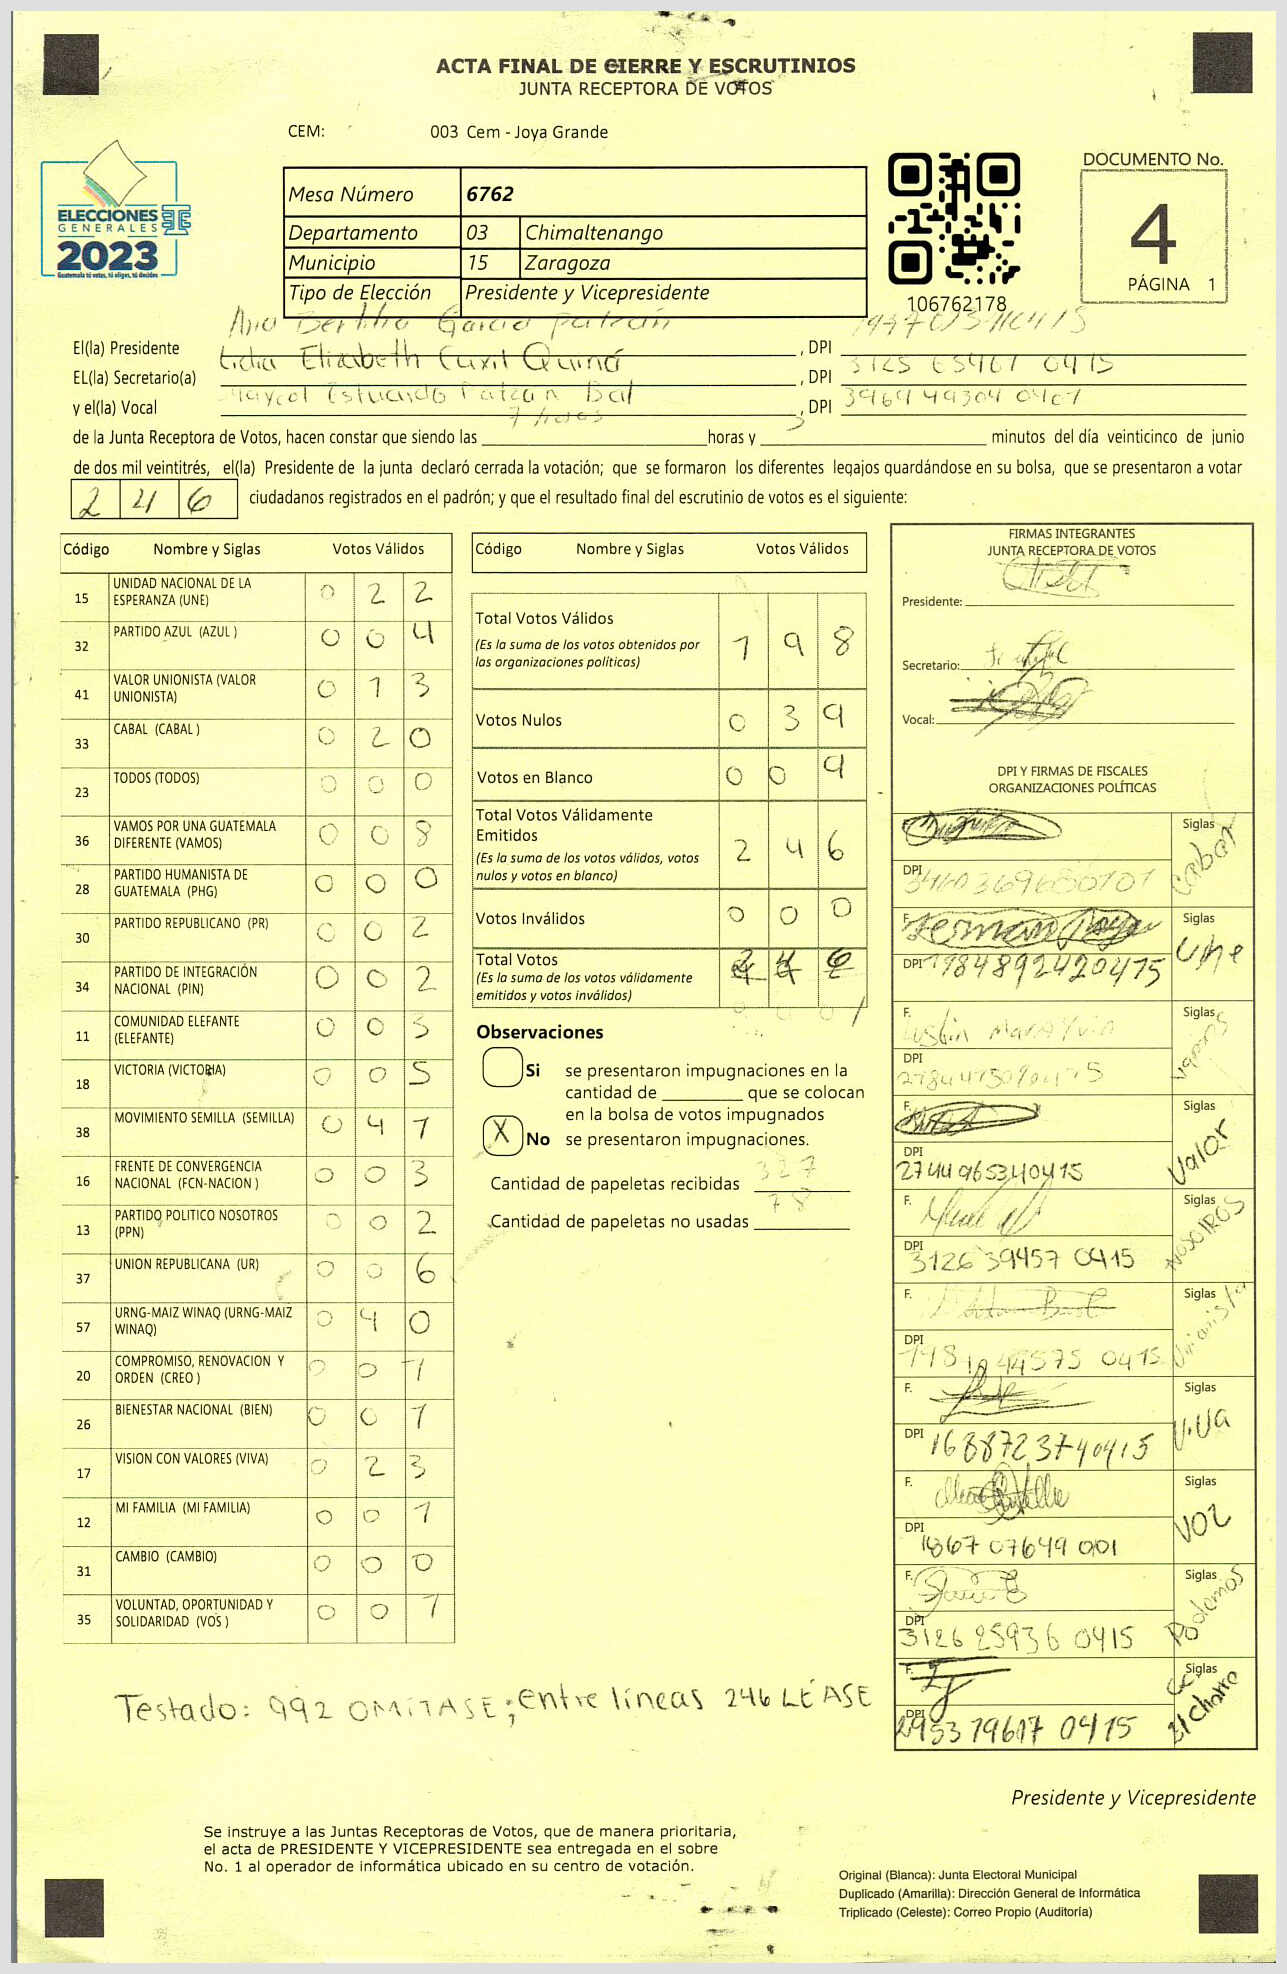 ACTA FINAL DE CIERRE Y ESCRUTINIOS
JUNTA RECEPTORA DE VOTOS
CEM: 003 Cem - Joya Grande
ELECCIONES
GENERALES
2023
Guatemala tú votas, tú eliges, tú decides
Mesa Número 6762
Departamento 03 Chimaltenango
Municipio 15 Zaragoza
Tipo de Elección Presidente y Vicepresidente
106762178
DOCUMENTO No.
4
PÁGINA 1
El(la) Presidente Ana Bertha Garcia Patzán , DPI
EL(la) Secretario(a) Lidia Elizabeth Cuxil Quiná , DPI 3125 65467 0415
y el(la) Vocal Maycol Estuardo Patzan Bal , DPI 3969 49304 0407
de la Junta Receptora de Votos, hacen constar que siendo las 7 horas y 5 minutos del día veinticinco de junio
de dos mil veintitrés, el(la) Presidente de la junta declaró cerrada la votación; que se formaron los diferentes legajos guardándose en su bolsa, que se presentaron a votar
246 ciudadanos registrados en el padrón; y que el resultado final del escrutinio de votos es el siguiente:
Código Nombre y Siglas Votos Válidos
15 UNIDAD NACIONAL DE LA ESPERANZA (UNE) 0 2 2
32 PARTIDO AZUL (AZUL ) 0 0 4
41 VALOR UNIONISTA (VALOR UNIONISTA) 0 1 3
33 CABAL (CABAL ) 0 2 0
23 TODOS (TODOS) 0 0 0
36 VAMOS POR UNA GUATEMALA DIFERENTE (VAMOS) 0 0 8
28 PARTIDO HUMANISTA DE GUATEMALA (PHG) 0 0 0
30 PARTIDO REPUBLICANO (PR) 0 0 2
34 PARTIDO DE INTEGRACIÓN NACIONAL (PIN) 0 0 2
11 COMUNIDAD ELEFANTE (ELEFANTE) 0 0 3
18 VICTORIA (VICTORIA) 0 0 5
38 MOVIMIENTO SEMILLA (SEMILLA) 0 4 1
16 FRENTE DE CONVERGENCIA NACIONAL (FCN-NACION ) 0 0 3
13 PARTIDO POLITICO NOSOTROS (PPN) 0 0 2
37 UNION REPUBLICANA (UR) 0 0 6
57 URNG-MAIZ WINAQ (URNG-MAIZ WINAQ) 0 4 0
20 COMPROMISO, RENOVACION Y ORDEN (CREO ) 0 0 1
26 BIENESTAR NACIONAL (BIEN) 0 0 1
17 VISION CON VALORES (VIVA) 0 2 3
12 MI FAMILIA (MI FAMILIA) 0 0 1
31 CAMBIO (CAMBIO) 0 0 0
35 VOLUNTAD, OPORTUNIDAD Y SOLIDARIDAD (VOS ) 0 0 1
Código Nombre y Siglas Votos Válidos
Total Votos Válidos 1 9 8
(Es la suma de los votos obtenidos por
las organizaciones políticas)
Votos Nulos 0 3 9
Votos en Blanco 0 0 9
Total Votos Válidamente
Emitidos 2 4 6
(Es la suma de los votos válidos, votos
nulos y votos en blanco)
Votos Inválidos 0 0 0
Total Votos 2 4 6
(Es la suma de los votos válidamente
emitidos y votos inválidos)
Observaciones
Si se presentaron impugnaciones en la
cantidad de que se colocan
en la bolsa de votos impugnados
X No se presentaron impugnaciones.
Cantidad de papeletas recibidas 327
Cantidad de papeletas no usadas 78
FIRMAS INTEGRANTES
JUNTA RECEPTORA DE VOTOS
Presidente:
Secretario:
Vocal:
DPI Y FIRMAS DE FISCALES
ORGANIZACIONES POLÍTICAS
Siglas Cabal
DPI 3460369680101
F. Siglas Une
DPI 1984892420415
F. Siglas Vamos
DPI
F. Siglas Valor
DPI 2744965340415
F. Siglas NOSOTROS
DPI 3126 39457 0415
F. Siglas Unionista
DPI
F. Siglas ViVa
DPI 1688723740415
Siglas VOZ
DPI 1867 07649 0101
F. Siglas Podemos
DPI 3126 25936 0415
F. Siglas El Charro
DPI 2953 79617 0415
Testado: 992 OMíTASE; entre líneas 246 LÉASE
Presidente y Vicepresidente
Se instruye a las Juntas Receptoras de Votos, que de manera prioritaria,
el acta de PRESIDENTE Y VICEPRESIDENTE sea entregada en el sobre
No. 1 al operador de informática ubicado en su centro de votación.
Original (Blanca): Junta Electoral Municipal
Duplicado (Amarilla): Dirección General de Informática
Triplicado (Celeste): Correo Propio (Auditoría)